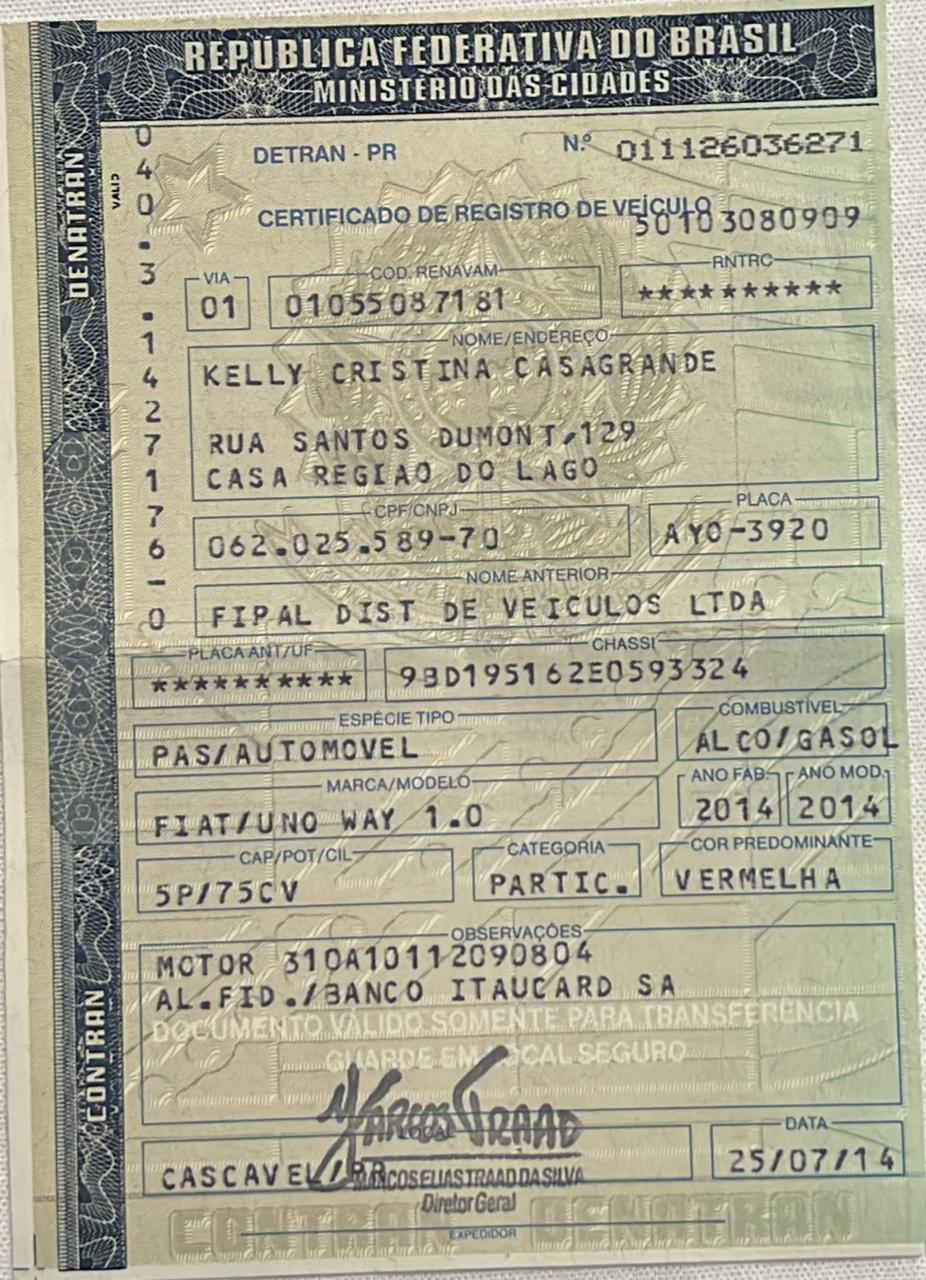 REPÚBLICA FEDERATIVA DO BRASIL
MINISTÉRIO DAS CIDADES
DENATRAN
VALID
040.3.1427176-0
DETRAN - PR
N.º 011126036271
CERTIFICADO DE REGISTRO DE VEÍCULO
50103080909
VIA
01
CÓD. RENAVAM
01055087181
RNTRC
**********
NOME/ENDEREÇO
KELLY CRISTINA CASAGRANDE
RUA SANTOS DUMONT,129
CASA REGIAO DO LAGO
CPF/CNPJ
062.025.589-70
PLACA
AYO-3920
NOME ANTERIOR
FIPAL DIST DE VEICULOS LTDA
PLACA ANT/UF
**********
CHASSI
9BD195162E0593324
ESPÉCIE TIPO
PAS/AUTOMOVEL
COMBUSTÍVEL
ALCO/GASOL
MARCA/MODELO
FIAT/UNO WAY 1.0
ANO FAB.
2014
ANO MOD.
2014
CAP/POT/CIL
5P/75CV
CATEGORIA
PARTIC.
COR PREDOMINANTE
VERMELHA
OBSERVAÇÕES
MOTOR 310A10112090804
AL.FID./BANCO ITAUCARD SA
DOCUMENTO VÁLIDO SOMENTE PARA TRANSFERÊNCIA
GUARDE EM LOCAL SEGURO
CONTRAN
Marcos Traad
LOCAL
CASCAVEL/PR
MARCOS ELIAS TRAAD DA SILVA
Diretor Geral
EXPEDIDOR
DATA
25/07/14
CONTRAN DENATRAN